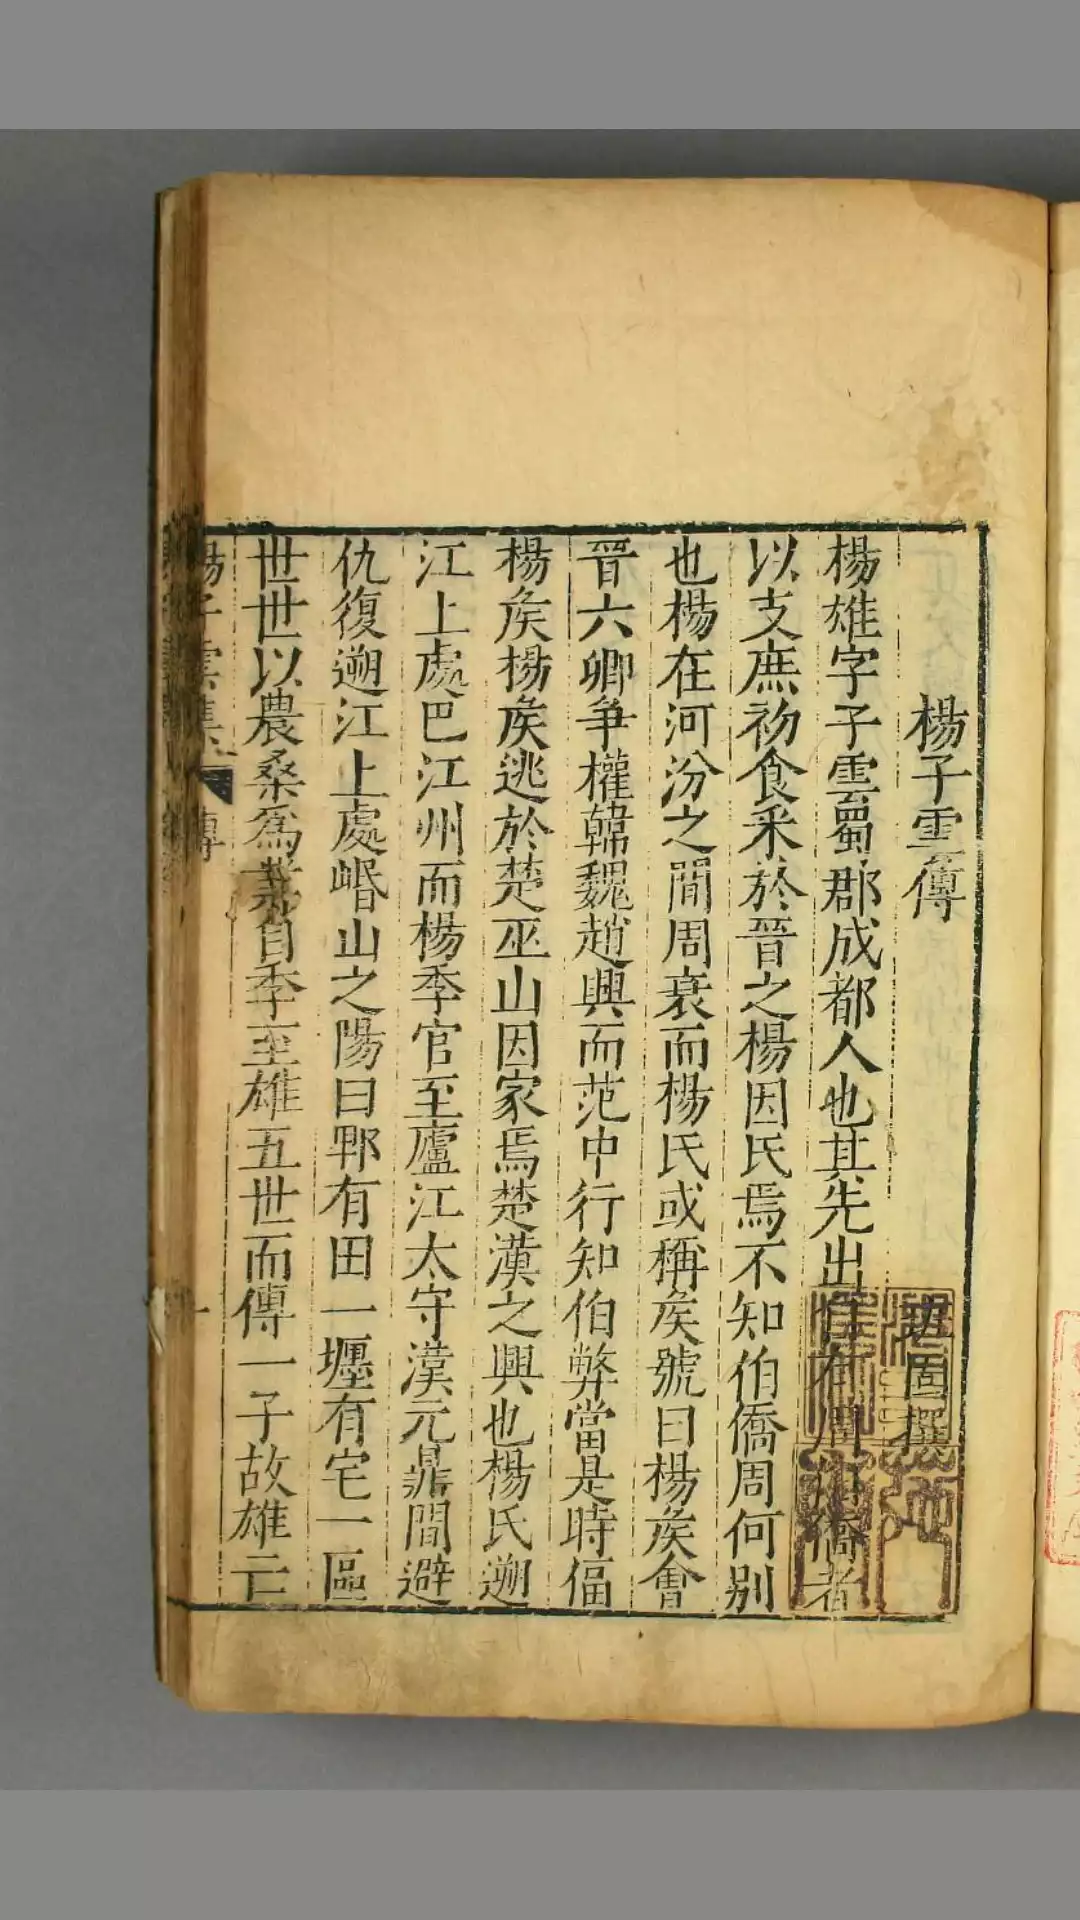 楊子雲傳
班固撰
楊雄字子雲蜀郡成都人也其先出自有周伯僑者
以支庶初食采於晉之楊因氏焉不知伯僑周何別
也楊在河汾之間周衰而楊氏或稱矦號曰楊矦會
晉六卿爭權韓魏趙興而范中行知伯弊當是時偪
楊矦楊矦逃於楚巫山因家焉楚漢之興也楊氏遡
江上處巴江州而楊季官至廬江太守漢元鼎間避
仇復遡江上處崏山之陽曰郫有田一壥有宅一區
世世以農桑為業自季至雄五世而傳一子故雄亡
楊子雲集
傳
一